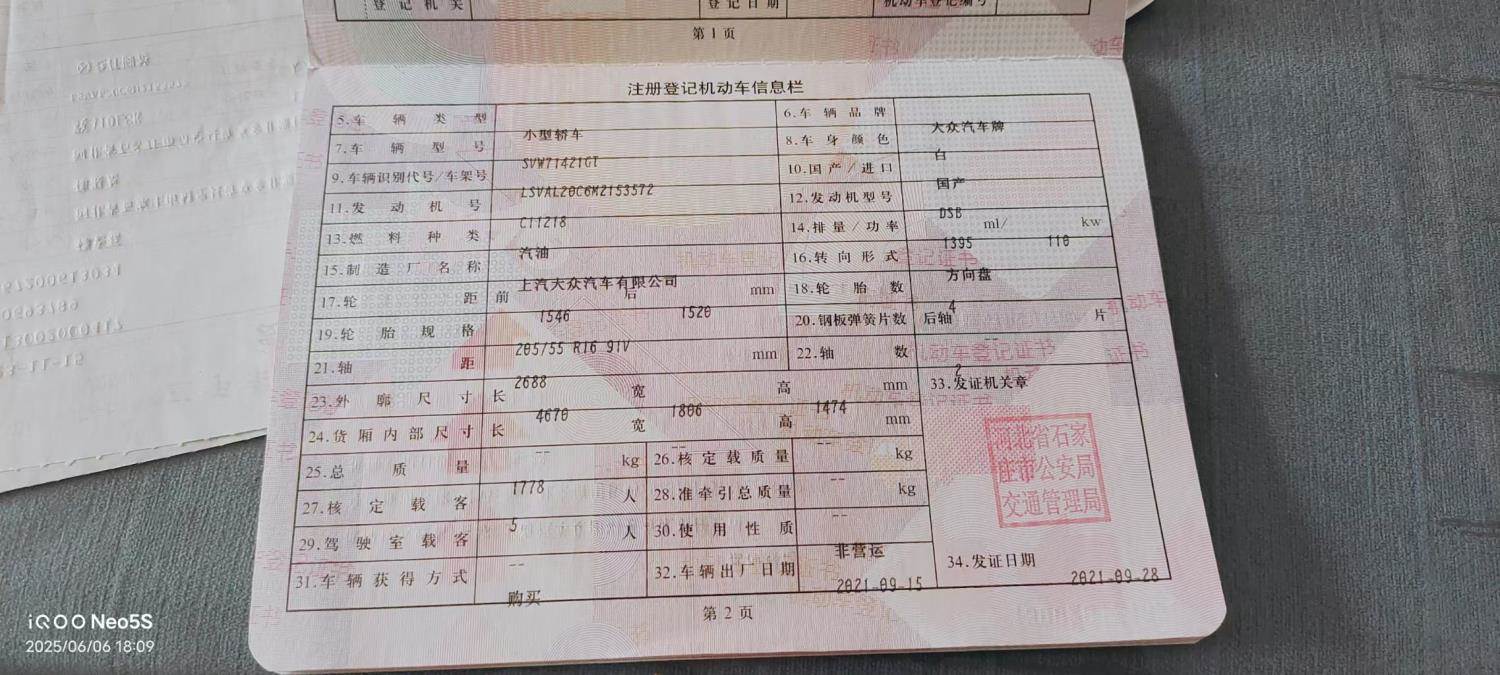 登记机关 登记日期 机动车登记编号
第1页
注册登记机动车信息栏
5.车辆类型 小型轿车 6.车辆品牌 大众汽车牌
7.车辆型号 SVW71421GT 8.车身颜色 白
9.车辆识别代号/车架号 LSVAL20C6M2153572 10.国产/进口 国产
11.发动机号 C11218 12.发动机型号 DSB
13.燃料种类 汽油 14.排量/功率 1395 ml/ 110 kw
15.制造厂名称 上汽大众汽车有限公司 16.转向形式 方向盘
17.轮距 前 1546 后 1520 mm 18.轮胎数 4
19.轮胎规格 205/55 R16 91V 20.钢板弹簧片数 后轴 -- 片
21.轴距 2688 mm 22.轴数 2
23.外廓尺寸 长 4670 宽 1806 高 1474 mm 33.发证机关章
24.货厢内部尺寸 长 -- 宽 -- 高 -- mm
河北省石家
庄市公安局
交通管理局
25.总质量 1778 kg 26.核定载质量 -- kg
27.核定载客 5 人 28.准牵引总质量 -- kg
29.驾驶室载客 -- 人 30.使用性质 非营运
31.车辆获得方式 购买 32.车辆出厂日期 2021-09-15 34.发证日期 2021-09-28
第2页
iQOO Neo5S
2025/06/06 18:09